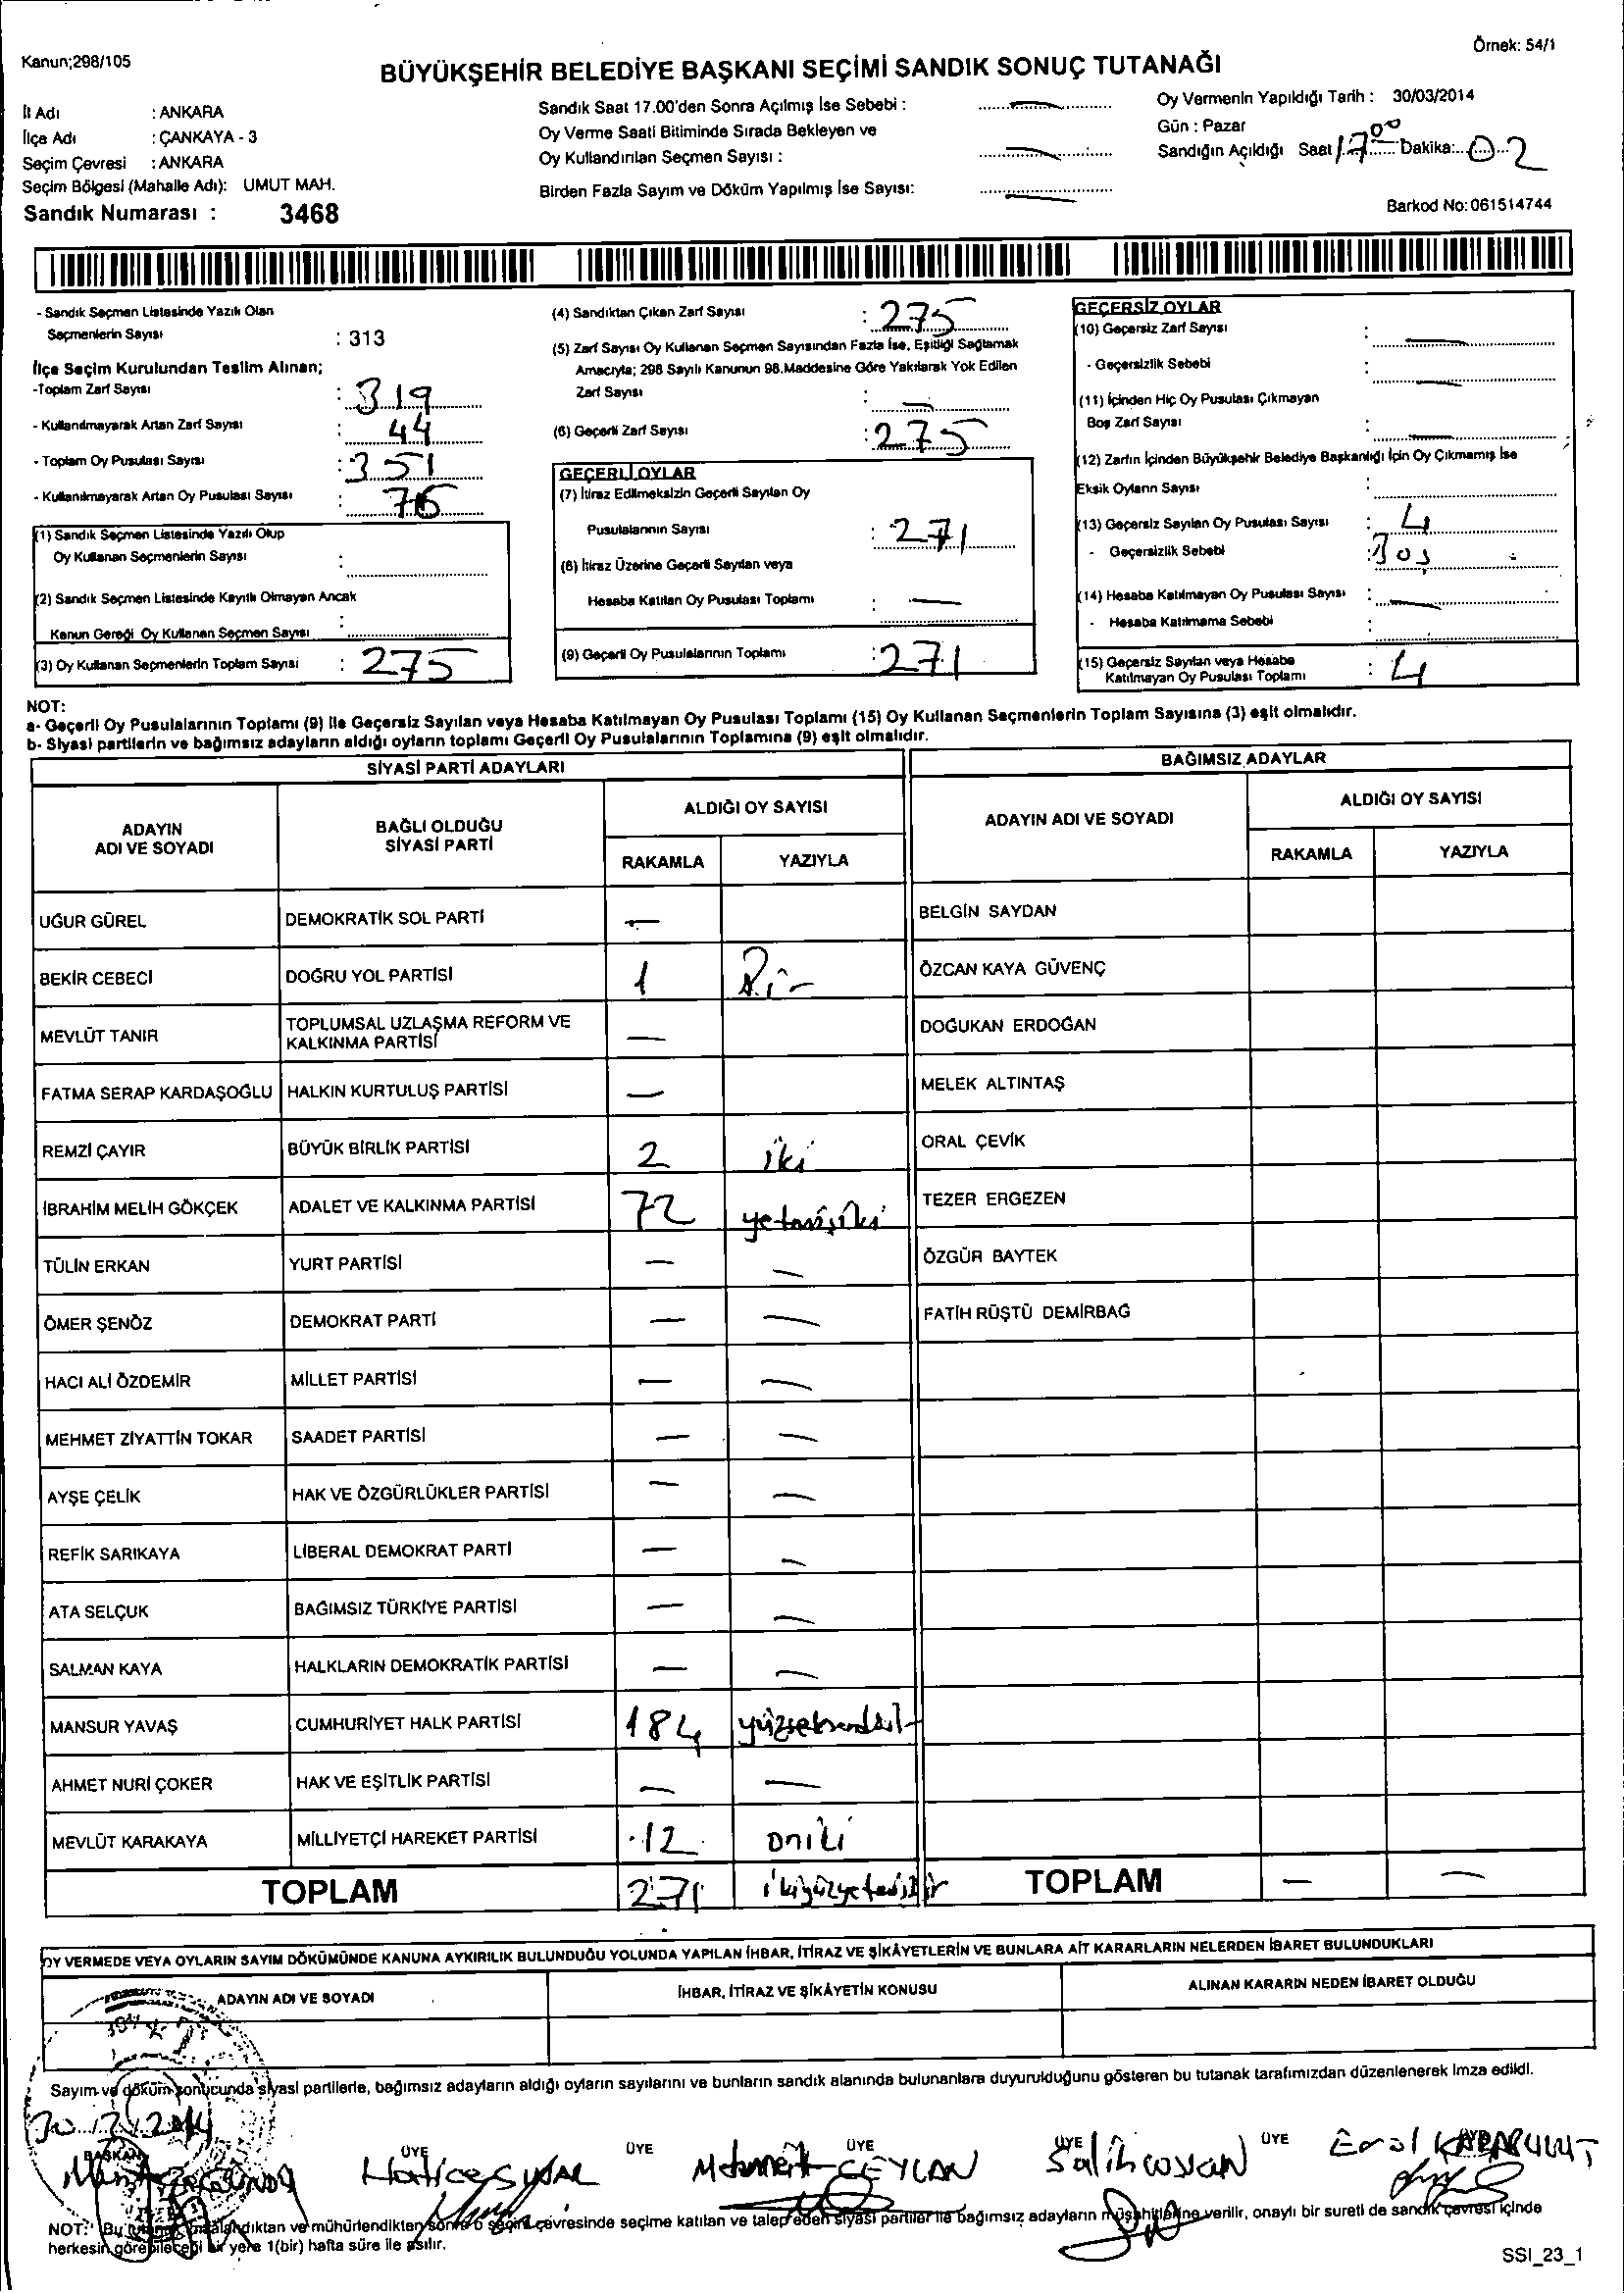 Örnek: 54/1
Kanun;298/105
BÜYÜKŞEHİR BELEDİYE BAŞKANI SEÇİMİ SANDIK SONUÇ TUTANAĞI
İl Adı : ANKARA
İlçe Adı : ÇANKAYA - 3
Seçim Çevresi : ANKARA
Seçim Bölgesi (Mahalle Adı): UMUT MAH.
Sandık Numarası : 3468
Sandık Saat 17.00'den Sonra Açılmış İse Sebebi : —
Oy Verme Saati Bitiminde Sırada Bekleyen ve
Oy Kullandırılan Seçmen Sayısı : —
Birden Fazla Sayım ve Döküm Yapılmış İse Sayısı: —
Oy Vermenin Yapıldığı Tarih : 30/03/2014
Gün : Pazar
Sandığın Açıldığı Saat 17 00 Dakika: 02
Barkod No:061514744
- Sandık Seçmen Listesinde Yazılı Olan
Seçmenlerin Sayısı : 313
İlçe Seçim Kurulundan Teslim Alınan;
-Toplam Zarf Sayısı : 319
- Kullanılmayarak Artan Zarf Sayısı : 44
- Toplam Oy Pusulası Sayısı : 351
- Kullanılmayarak Artan Oy Pusulası Sayısı : 76
(1) Sandık Seçmen Listesinde Yazılı Olup
Oy Kullanan Seçmenlerin Sayısı :
(2) Sandık Seçmen Listesinde Kayıtlı Olmayan Ancak
Kanun Gereği Oy Kullanan Seçmen Sayısı :
(3) Oy Kullanan Seçmenlerin Toplam Sayısı : 275
(4) Sandıktan Çıkan Zarf Sayısı : 275
(5) Zarf Sayısı Oy Kullanan Seçmen Sayısından Fazla İse, Eşitliği Sağlamak
Amacıyla; 298 Sayılı Kanunun 98.Maddesine Göre Yakılarak Yok Edilen
Zarf Sayısı : —
(6) Geçerli Zarf Sayısı : 275
GEÇERLİ OYLAR
(7) İtiraz Edilmeksizin Geçerli Sayılan Oy
Pusulalarının Sayısı : 271
(8) İtiraz Üzerine Geçerli Sayılan veya
Hesaba Katılan Oy Pusulası Toplamı : —
(9) Geçerli Oy Pusulalarının Toplamı : 271
GEÇERSİZ OYLAR
(10) Geçersiz Zarf Sayısı : —
- Geçersizlik Sebebi : —
(11) İçinden Hiç Oy Pusulası Çıkmayan
Boş Zarf Sayısı : —
(12) Zarfın İçinden Büyükşehir Belediye Başkanlığı İçin Oy Çıkmamış İse
Eksik Oyların Sayısı :
(13) Geçersiz Sayılan Oy Pusulası Sayısı : 4
- Geçersizlik Sebebi : Boş
(14) Hesaba Katılmayan Oy Pusulası Sayısı : —
- Hesaba Katılmama Sebebi :
(15) Geçersiz Sayılan veya Hesaba
Katılmayan Oy Pusulası Toplamı : 4
NOT:
a- Geçerli Oy Pusulalarının Toplamı (9) ile Geçersiz Sayılan veya Hesaba Katılmayan Oy Pusulası Toplamı (15) Oy Kullanan Seçmenlerin Toplam Sayısına (3) eşit olmalıdır.
b- Siyasi partilerin ve bağımsız adayların aldığı oyların toplamı Geçerli Oy Pusulalarının Toplamına (9) eşit olmalıdır.
SİYASİ PARTİ ADAYLARI
ADAYIN ADI VE SOYADI
BAĞLI OLDUĞU SİYASİ PARTİ
ALDIĞI OY SAYISI
RAKAMLA YAZIYLA
UĞUR GÜREL DEMOKRATİK SOL PARTİ —
BEKİR CEBECİ DOĞRU YOL PARTİSİ 1 Bir
MEVLÜT TANIR TOPLUMSAL UZLAŞMA REFORM VE KALKINMA PARTİSİ —
FATMA SERAP KARDAŞOĞLU HALKIN KURTULUŞ PARTİSİ —
REMZİ ÇAYIR BÜYÜK BİRLİK PARTİSİ 2 iki
İBRAHİM MELİH GÖKÇEK ADALET VE KALKINMA PARTİSİ 72 yetmişiki
TÜLİN ERKAN YURT PARTİSİ — —
ÖMER ŞENÖZ DEMOKRAT PARTİ — —
HACI ALİ ÖZDEMİR MİLLET PARTİSİ — —
MEHMET ZİYATTİN TOKAR SAADET PARTİSİ — —
AYŞE ÇELİK HAK VE ÖZGÜRLÜKLER PARTİSİ — —
REFİK SARIKAYA LİBERAL DEMOKRAT PARTİ — —
ATA SELÇUK BAĞIMSIZ TÜRKİYE PARTİSİ — —
SALMAN KAYA HALKLARIN DEMOKRATİK PARTİSİ — —
MANSUR YAVAŞ CUMHURİYET HALK PARTİSİ 184 yüzseksendört
AHMET NURİ ÇOKER HAK VE EŞİTLİK PARTİSİ — —
MEVLÜT KARAKAYA MİLLİYETÇİ HAREKET PARTİSİ 12 oniki
TOPLAM 271 ikiyüzyetmişbir
BAĞIMSIZ ADAYLAR
ADAYIN ADI VE SOYADI
ALDIĞI OY SAYISI
RAKAMLA YAZIYLA
BELGİN SAYDAN
ÖZCAN KAYA GÜVENÇ
DOĞUKAN ERDOĞAN
MELEK ALTINTAŞ
ORAL ÇEVİK
TEZER ERGEZEN
ÖZGÜR BAYTEK
FATİH RÜŞTÜ DEMİRBAĞ
TOPLAM — —
OY VERMEDE VEYA OYLARIN SAYIM DÖKÜMÜNDE KANUNA AYKIRILIK BULUNDUĞU YOLUNDA YAPILAN İHBAR, İTİRAZ VE ŞİKÂYETLERİN VE BUNLARA AİT KARARLARIN NELERDEN İBARET BULUNDUKLARI
ADAYIN ADI VE SOYADI İHBAR, İTİRAZ VE ŞİKÂYETİN KONUSU ALINAN KARARIN NEDEN İBARET OLDUĞU
Sayım ve döküm sonucunda siyasi partilerle, bağımsız adayların aldığı oyların sayılarını ve bunların sandık alanında bulunanlara duyurulduğunu gösteren bu tutanak tarafımızdan düzenlenerek imza edildi.
BAŞKAN ÜYE ÜYE ÜYE ÜYE ÜYE ÜYE
Mehmet CEYLAN Salih coşkan Erol KARABULUT
NOT: Bu tutanak imzalandıktan ve mühürlendikten sonra o seçim çevresinde seçime katılan ve talep eden siyasi partiler ile bağımsız adayların müşahitlerine verilir, onaylı bir sureti de sandık çevresi içinde
herkesin görebileceği bir yere 1(bir) hafta süre ile asılır.
SSI_23_1